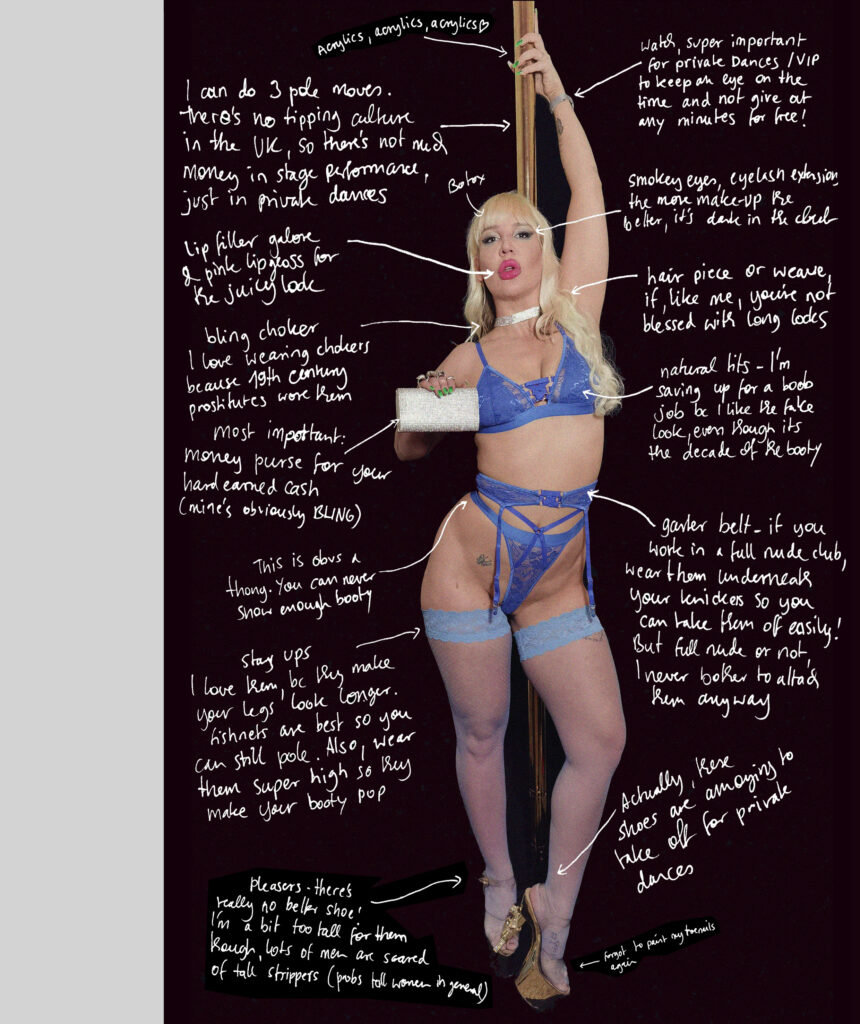 Acrylics, acrylics, acrylics
I can do 3 pole moves.
There's no tipping culture
in the UK, so there's not much
money in stage performance,
just in private dances
Botox
lip filler galore
& pink lipgloss for
the juicy look
bling choker
I love wearing chokers
because 19th century
prostitutes wore them
most important:
money purse for your
hard earned cash
(mine's obviously BLING)
This is obvs a
thong. You can never
show enough booty
stay ups
I love them, bc they make
your legs look longer.
fishnets are best so you
can still pole. Also, wear
them super high so they
make your booty pop
pleasers - there's
really no better shoe!
I'm a bit too tall for them
though, lots of men are scared
of tall strippers (probs tall women in general)
watch, super important
for private dances / VIP
to keep an eye on the
time and not give out
any minutes for free!
smokey eyes, eyelash extensions
the more make-up the
better, it's dark in the club
hair piece or weave,
if, like me, you're not
blessed with long locks
natural tits - I'm
saving up for a boob
job bc I like the fake
look, even though it's
the decade of the booty
garter belt - if you
work in a full nude club,
wear them underneath
your knickers so you
can take them off easily!
But full nude or not,
I never bother to attach
them anyway
Actually, these
shoes are annoying to
take off for private
dances
forgot to paint my toenails
again